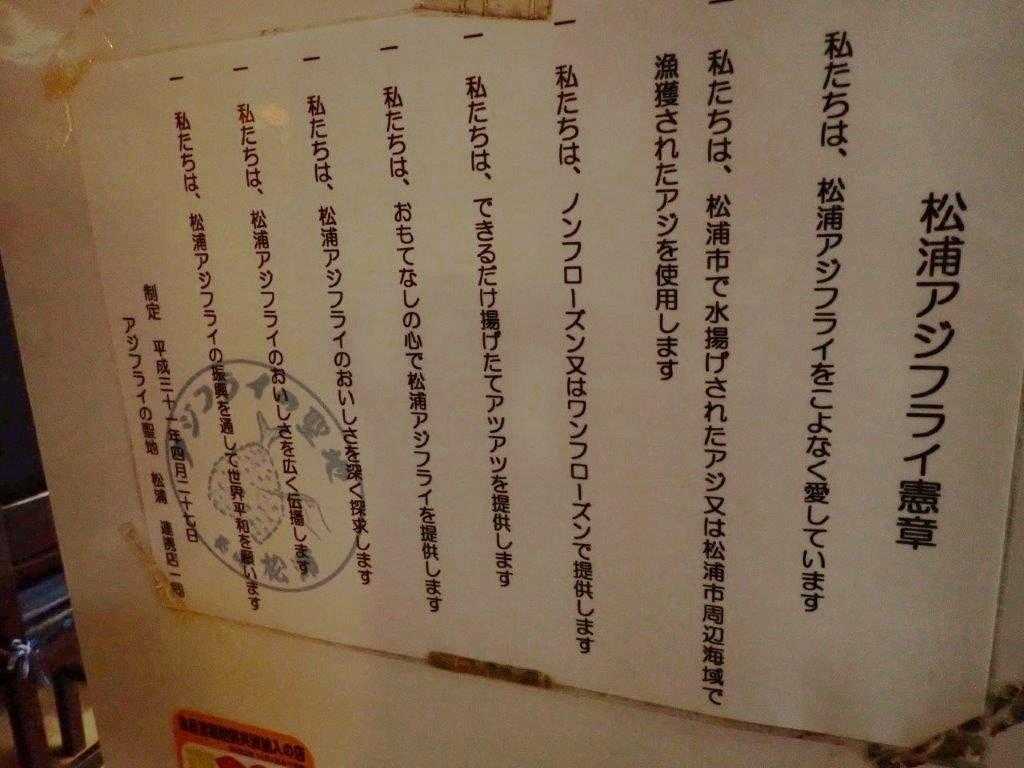 松浦アジフライ憲章
私たちは、松浦アジフライをこよなく愛しています
一 私たちは、松浦市で水揚げされたアジ又は松浦市周辺海域で
漁獲されたアジを使用します
一 私たちは、ノンフローズン又はワンフローズンで提供します
一 私たちは、できるだけ揚げたてアツアツを提供します
一 私たちは、おもてなしの心で松浦アジフライを提供します
一 私たちは、松浦アジフライのおいしさを深く探求します
一 私たちは、松浦アジフライのおいしさを広く伝播します
一 私たちは、松浦アジフライの振興を通して世界平和を願います
制定 平成三十一年四月二十七日
アジフライの聖地 松浦 提供店一同
アジフライの聖地
松浦